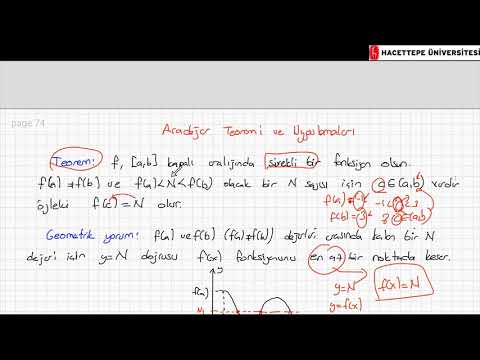 HACETTEPE ÜNİVERSİTESİ
page 74
Aradeğer Teoremi ve Uygulamaları
Teorem: f, [a,b] kapalı aralığında sürekli bir fonksiyon olsun.
f(a) ≠ f(b) ve f(a)<N<f(b) olacak bir N sayısı için c∈(a,b) vardır
öyleki f(c) = N olur.
f(a)
f(b)=3
c∈(a,b)
Geometrik yorum: f(a) ve f(b) (f(a)≠f(b)) değerleri arasında kalan bir N
değeri için y=N doğrusu f(x) fonksiyonunu en az bir noktada keser.
y
f(a)
y=N
y=f(x)
f(x)=N